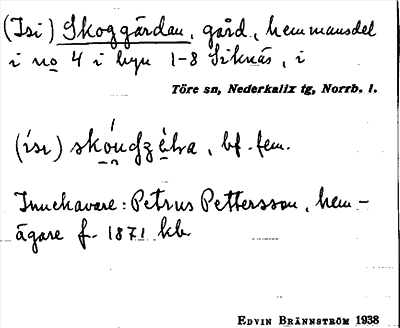 (Isi) Skoggärdan, gård, hemmansdel
i no 4 i byn 1-8 Siknäs, i
Töre sn, Nederkalix tg, Norrb. l.
bf. fem.
Innehavare: Petrus Pettersson, hem-
ägare f. 1871 kb.
EDVIN BRÄNNSTRÖM 1938